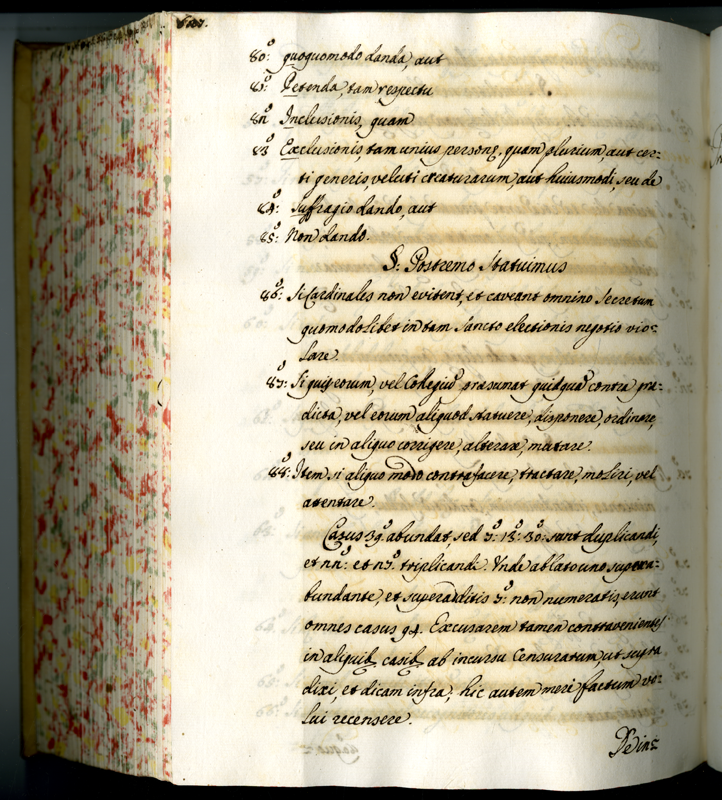 80.° quoquomodo danda, aut
81.° Petenda, tam respectu
82.° Inclusionis, quam
83.° Exclusionis, tam unius personę, quam plurium aut cer-
ti generis, veluti creaturarum, aut huiusmodi, seu de
84.° Suffragio dando, aut
85.° Non dando.
§. Postremo Statuimus
86.° Si Cardinales non evitent, et caveant omnino secretum
quomodolibet in tam sancto electionis negotio vio-
lare.
87.° Si quis eorum, vel Collegiũ præsumat quidquã contra præ-
dicta, vel eorum aliquod statuere, disponere, ordinare,
seu in aliquo corrigere, alterare, mutare.
88.° Item si aliquo modo contrafacere, tractare, moliri, vel
attentare.
Casus 39.° abundat, sed 3.° 12.° 30.° sunt duplicandi,
et 22.° et 23.° triplicandi. Unde ablato uno supera-
bundante, et superadditis non numeratis, erunt
omnes casus 94. Excusarem tamen contravenientes
in aliquib. casib. ab incursu Censurarum, ut supra
dixi, et dicam infra; hic autem meré factum vo-
lui recensere.
Dein-